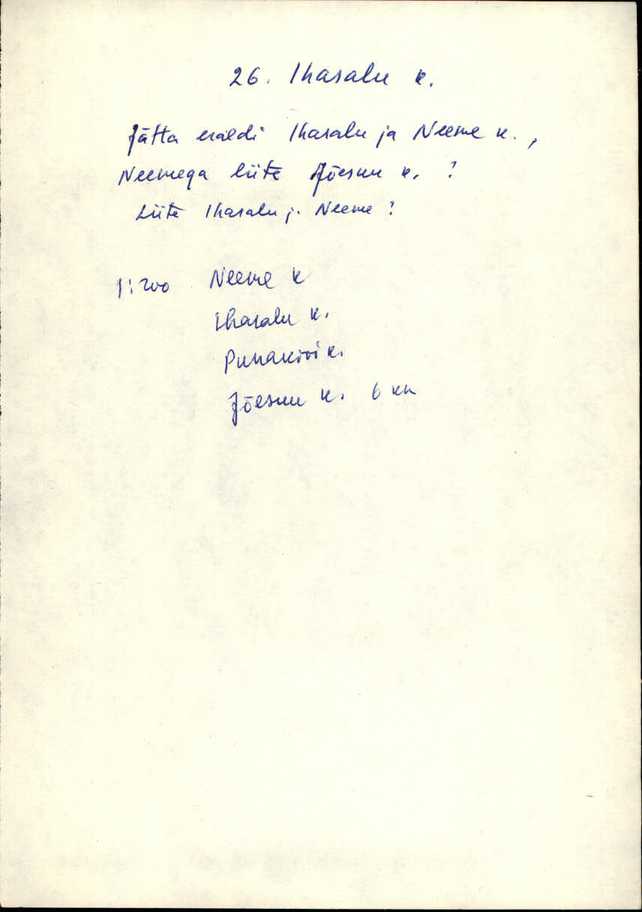 26. Ihasalu k.
Jätta eraldi Ihasalu ja Neeme k.,
Neemega liita Jõesuu k. ?
Liita Ihasalu j. Neeme ?
1:200 Neeme k
Ihasalu k.
Punakivi k.
Jõesuu k. 6 km